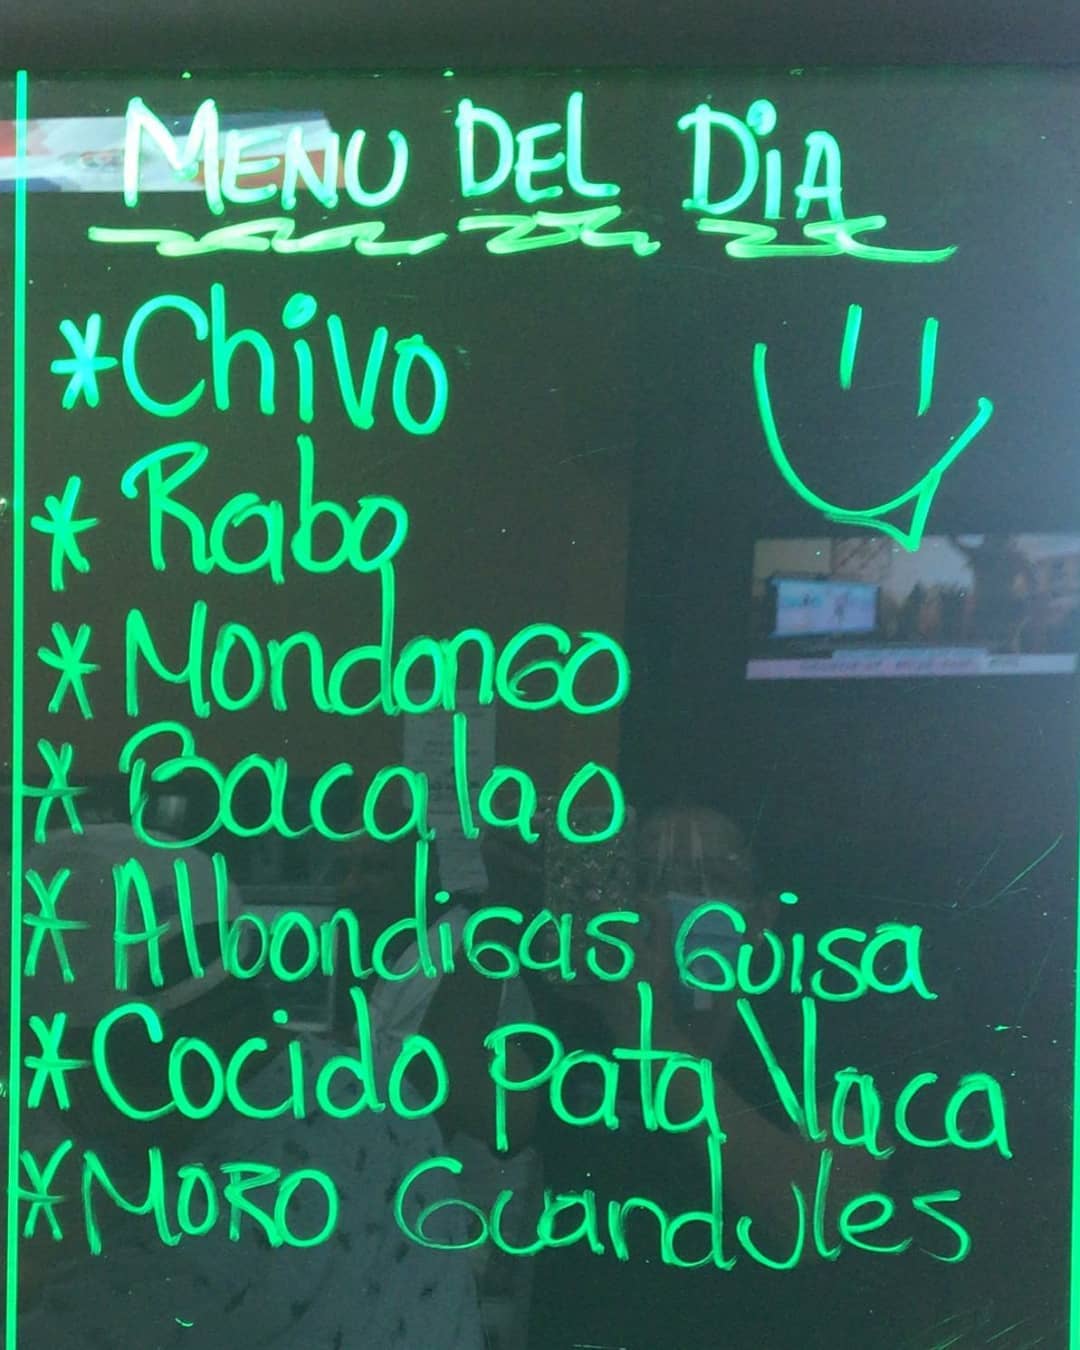 MENU DEL DiA
*Chivo
* Rabo
* MondonGO
* Bacalao
* AlbondiGas Guisa
*Cocido Pata Vaca
*MORO Guandules